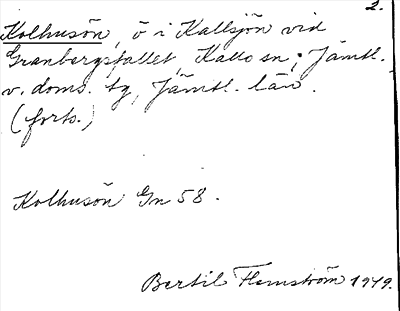 2.
Kolhusön, ö i Kallsjön vid
Granbergsfallet, Kalls sn; Jämtl.
v. doms. tg, Jämtl. län.
(forts.)
Kolhusön Gn 58.
Bertil Flemström 1949.